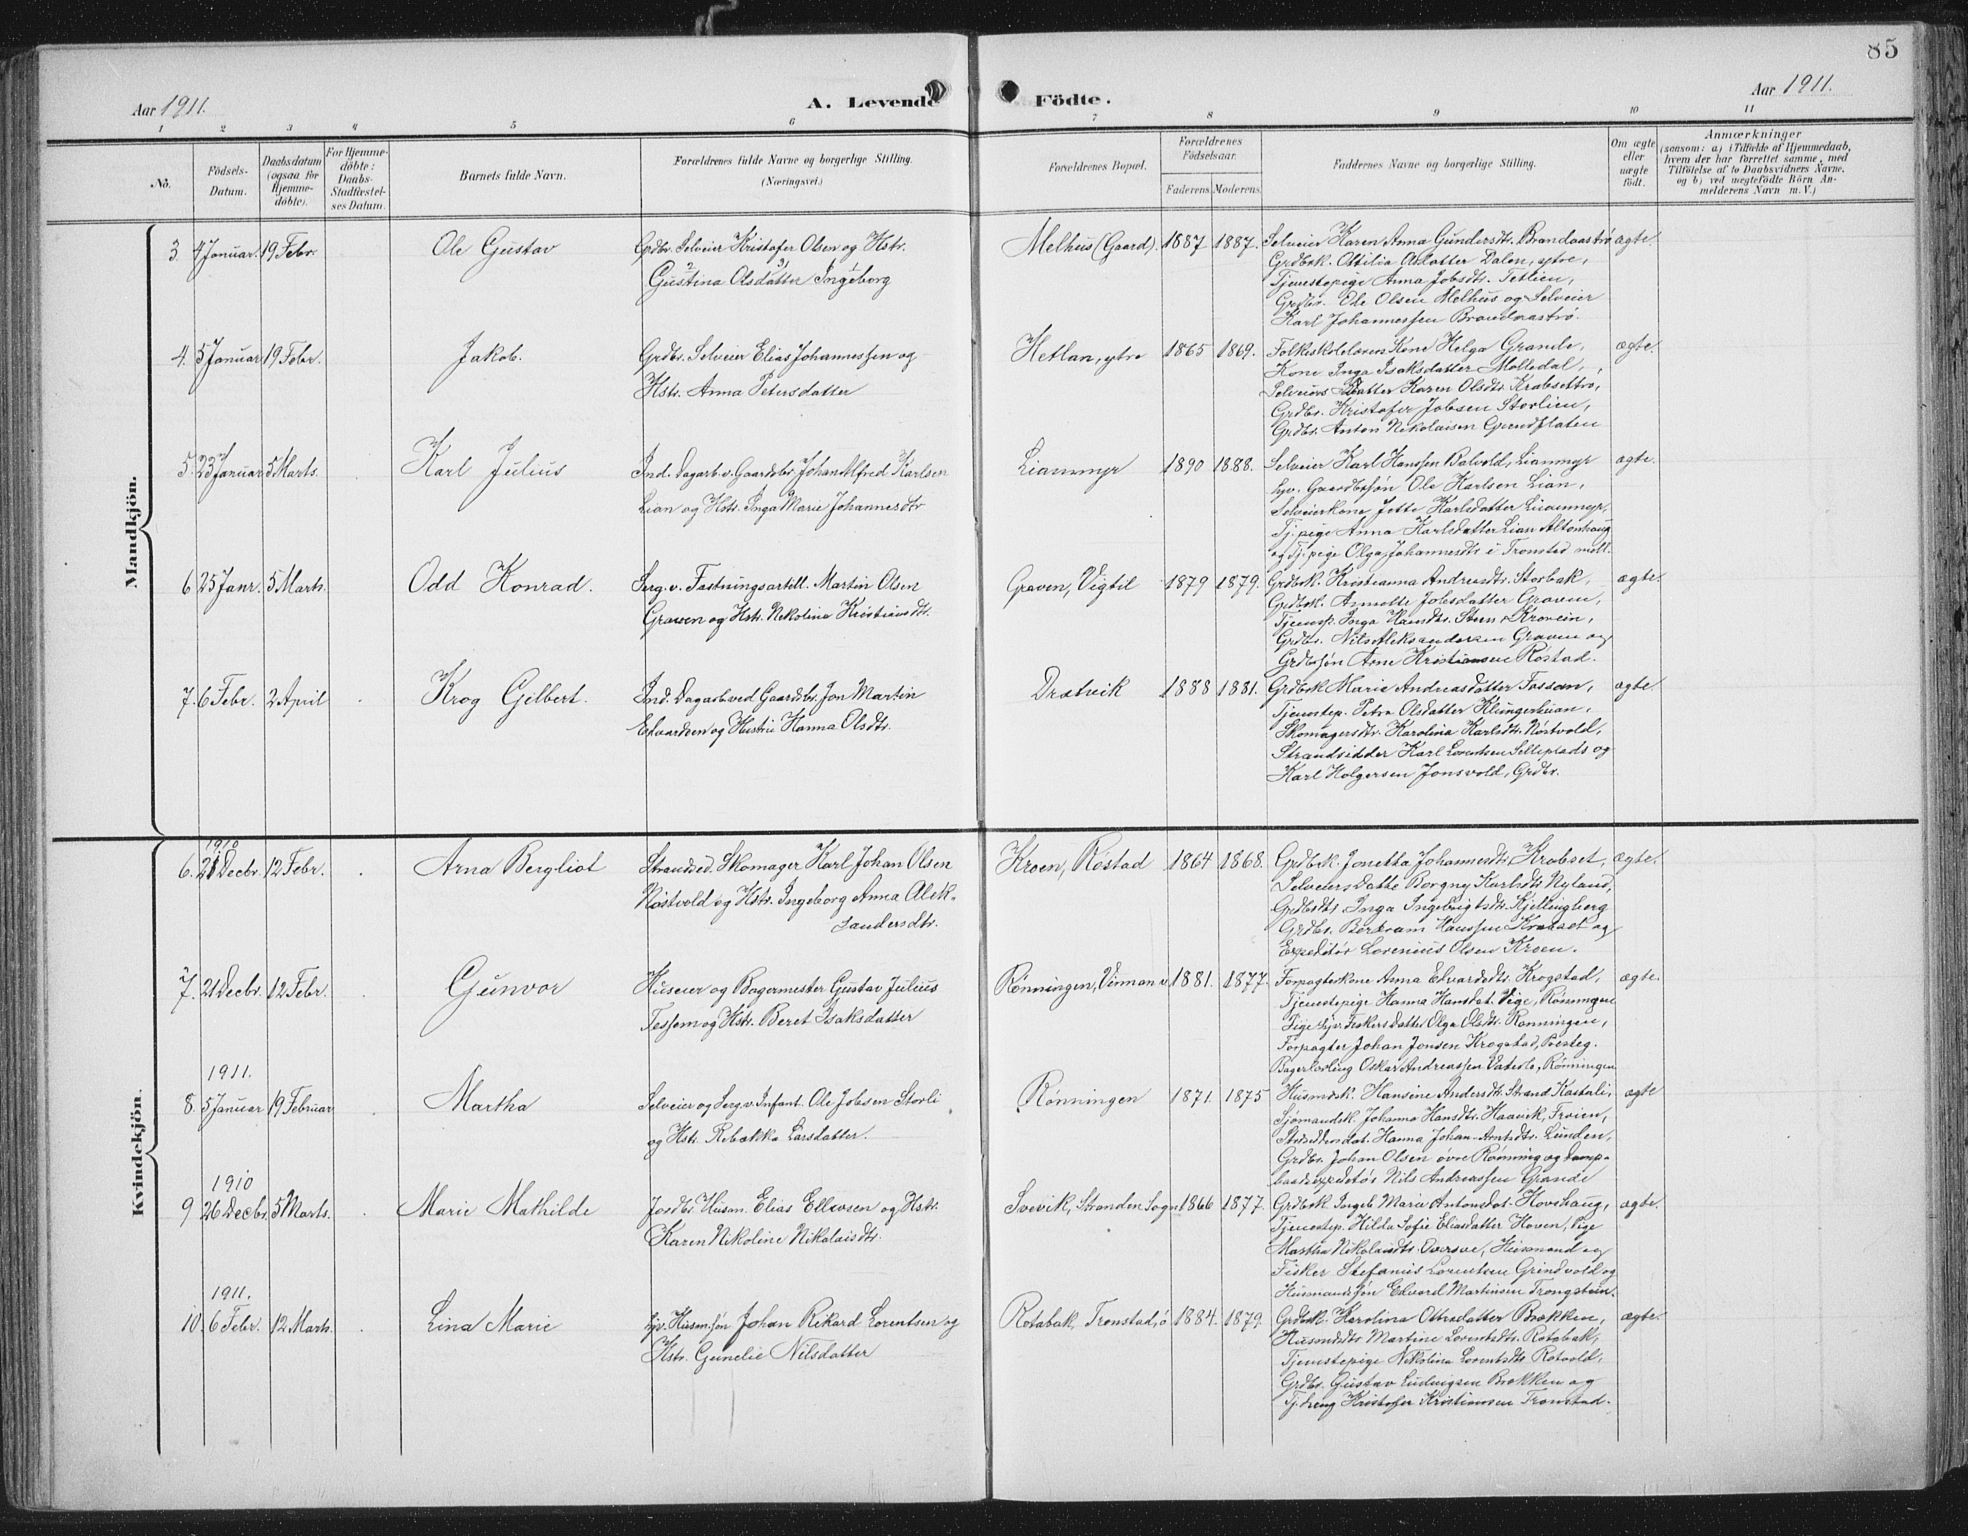 85
Aar 1911.
A. Levende
Födte.
Aar 1911.
1 2 3 4 5 6 7 8 9 10 11
No.
Födsels-Datum.
Daabsdatum (ogsaa for Hjemme-döbte).
For Hjemme-döbte: Daabs-Stadfæstel-ses Datum.
Barnets fulde Navn.
Forældrenes fulde Navne og borgerlige Stilling.
(Næringsvei.)
Forældrenes Bopæl.
Forældrenes Födselsaar.
Faderens. Moderens.
Faddernes Navne og borgerlige Stilling.
Om ægte eller uægte födt.
Anmærkninger
(saasom: a) i Tilfælde af Hjemmedaab, hvem der har forrettet samme, med Tilföielse af to Daabsvidners Navne, og b) ved uægtefödte Börn An-melderens Navn m. V.)
Mandkjön.
3. 4 Januar. 19 Febr. Ole Gustav
Grdbr. Selveier Kristofer Olsen og Hstr.
Gustina Olsdatter Ingeborg
Melhus (Gaard). 1887 1887.
Selveier Karen Anna Gundersdtr. Brandaastrø
Grdbrk. Attilia Olsdatter Dalen, ytre,
Tjenestepige Anna Jobsdtr. Tetlien,
Grdbr. Ole Olsen Melhus og Selveier
Karl Johannessen Brandaastrø.
ægte.
4. 5 Januar 19 Febr. Jakob.
Grdbr. Selveier Elias Johannessen og
Hstr. Anna Petersdatter
Hetlan, ytre 1865 1869.
Folkeskolelærer Kone Helga Grande,
Kone Inga Isaksdatter Molledal,
Selveiers Datter Karen Olsdtr. Krabsettrø,
Grdbr. Kristofer Jobsen Storlien,
Grdbr. Anton Nikolaisen Grundflaten
ægte.
5. 23 Januar 5 Marts. Karl Julius
Ind. Dagarb. v. Gaardsbr. Johan Alfred Karlsen
Lian og Hstr. Inga Marie Johannesdtr
Lianmyr 1890 1888.
Selveier Karl Hanssen Balvold, Lianmyr
hjv. Gaardbrsøn Ole Karlsen Lian,
Selveierkone Jette Karlsdatter Lianmyr,
Tj.pige Anna Karlsdatter Lian Altonhaug
og Tj.pige Olga Johannesdtr i Tronstad mell.
ægte.
6 25 Janr. 5 Marts. Odd Konrad.
Serg. v. Fæstningsartill. Martin Olsen
Graven og Hstr. Nikolina Kristiansdtr.
Graven, Vigtil 1879 1879.
Grdbrk. Kristianna Andreasdtr. Storbak,
Grdbrk. Annette Jobsdatter Graven,
Tjenesp. Inga Hansdtr. Steen, Krovein,
Grdbr. Nils Aleksandersen Graven og
Grdbrsøn Arne Kristiansen Røstad.
ægte.
7. 6 Febr. 2 April Krog Gilbert.
Ind. Dagarb. ved Gaardsbr. Jon Martin
Edvardsen og Hustru Hanna Olsdtr.
Dratvik 1888 1881.
Grdbrk Marie Andreasdatter Fossan,
Tjenestep. Petra Olsdatter Klingerhuan,
Skomagersdtr. Karolina Karlsdtr. Nøstvold,
Strandsidder Karl Lorentsen Selliplads og
Karl Holgersen Jonsvold, Grdbr.
ægte.
Kvindekjön.
1910
6. 21 Decbr. 12 Febr. Arna Bergliot
Strandsd. Skomager Karl Johan Olsen
Nøstvold og Hstr. Ingeborg Anna Alek-
sandersdtr.
Kroen, Røstad 1864 1868.
Grdbrk. Jonetta Johannesdtr. Krabset,
Selveiers Datte Borgny Karlsdtr. Nyland,
Grdbrdtr. Inga Ingebrigtsdtr. Kjellingberg
Grdbr. Bertram Hanssen Krabset og
Expeditør Lorenius Olsen Kroen.
ægte.
7. 21 Decbr. 12 Febr. Gunvor
Huseier og Bagermester Gustav Julius
Tessem og Hstr. Beret Isaksdatter
Rønningen, Vinnan v 1881. 1877.
Forpagterkone Anna Edvardsdtr. Krogstad,
Tjenestepige Hanna Hansdat. Vige, Rønningen
Pige hjv. Fiskers datter Olga Olsdtr. Rønningen,
Forpagter Johan Jonsen Krogstad, Presteg.
Bagerlærling Oskar Andreassen Vateste, Rønningen
ægte.
1911.
8. 5 Januar 19 Februar Martha
Selveier og Serg. v. Infant. Ole Jobsen Storli
og Hstr. Rebekka Larsdatter.
Rønningen 1871. 1875
Husmdsk. Hansine Andersdtr. Strand Kastali,
Sjømandsk. Johanna Hansdtr. Haavik, Trøien,
Strsiddersdat. Hanna Johan-Arntsdtr. Lunden,
Grdbr. Johan Olsen øvre Rønning og Damp-
baadexpeditør Nils Andreassen Grande
ægte
1910
9 26 Decbr. 5 Marts. Marie Mathilde
Jordbr. Husm. Elias Ellevsen og Hstr.
Karen Nikoline Nikolaisdtr.
Svevik, Stranden Sogn 1866 1877.
Grdbrk. Ingeb Maria Antonsdat. Hovshaug,
Tjenestep. Hilda Sofie Eliasdatter Hoven, Pige
Martha Nikolaisdtr. Oversve, Husmand og
Fisker Stefanus Lorentsen Grindvold og
Husmandssøn Edvard Martinsen Trongstuen.
ægte.
1911.
10. 6 Febr. 12 Marts. Lina Marie
hjv. Husm.søn Johan Rikard Lorentsen og
Hstr. Gunelie Nilsdatter
Rotabak, Tronstad, ø 1884. 1879
Grdbrk. Karolina Ottosdatter Brækken,
Husmdsdtr. Martine Lorentsdtr. Rotabak,
Tjenestepige Nikolina Lorentsdtr. Rotvold,
Grdbr. Gustav Ludvigsen Brækken og
Tj.dreng Kristofer Kristiansen Tronstad.
ægte.